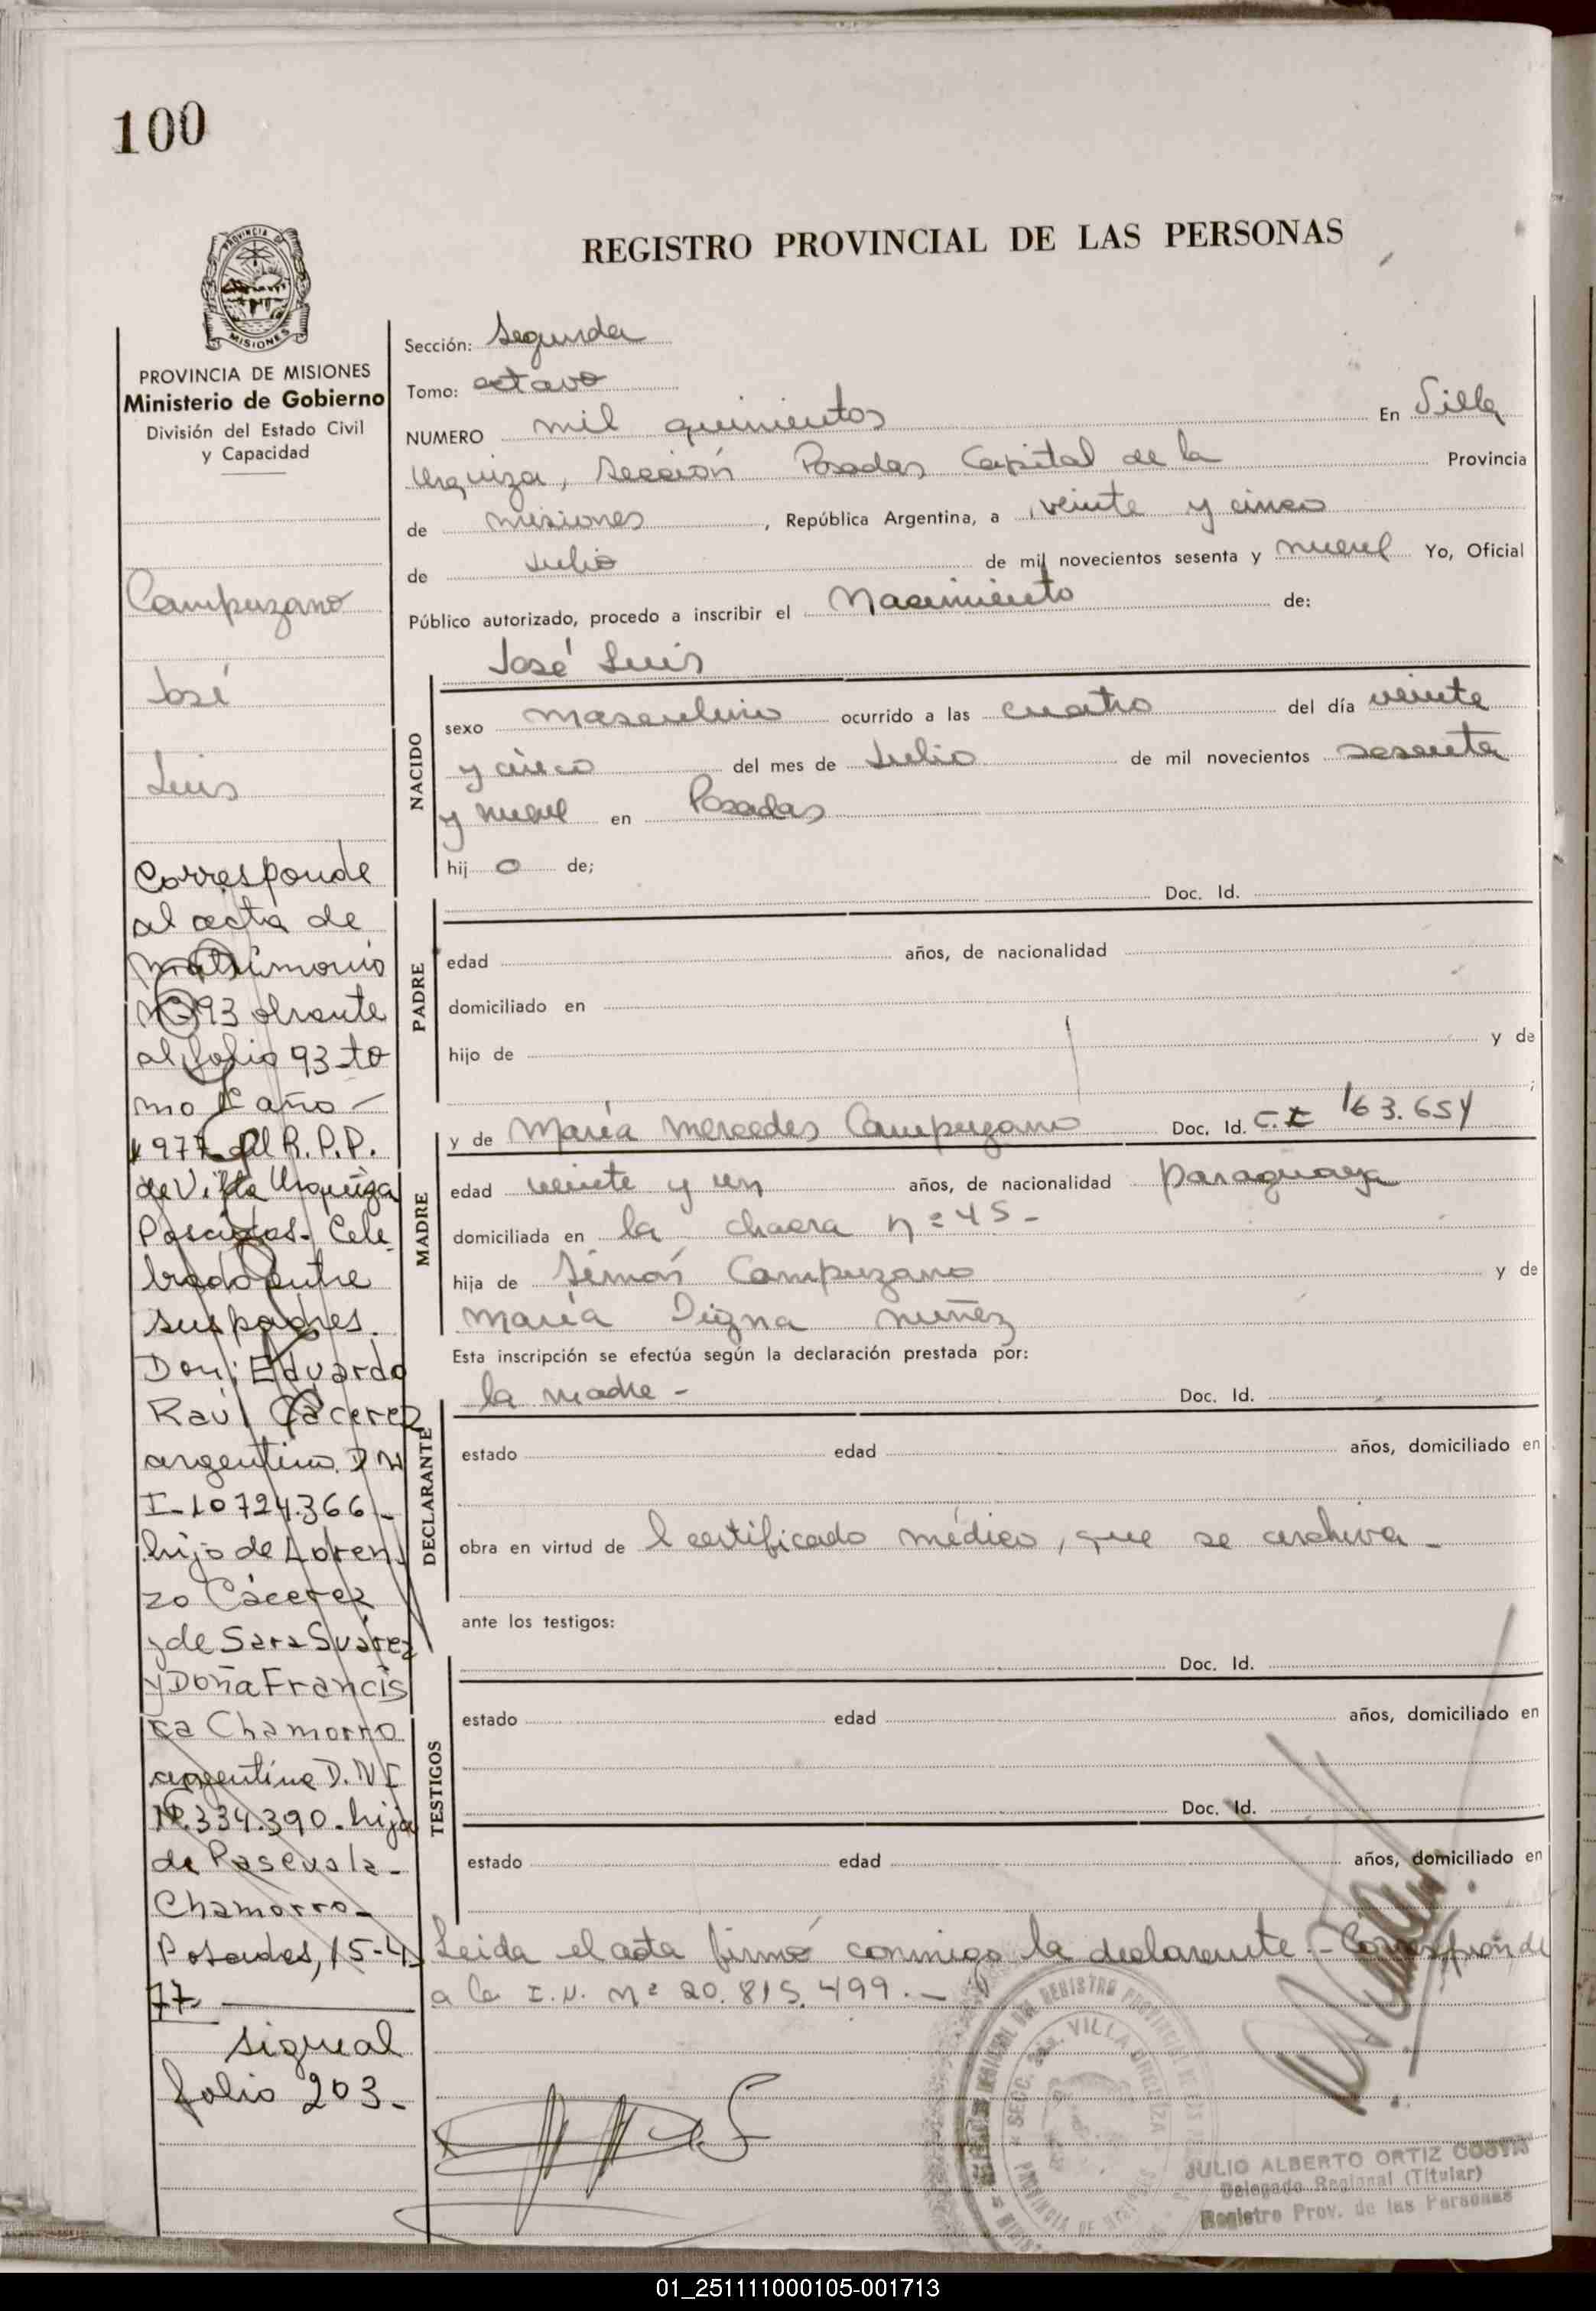 100
REGISTRO PROVINCIAL DE LAS PERSONAS
PROVINCIA DE
MISIONES
PROVINCIA DE MISIONES
Ministerio de Gobierno
División del Estado Civil
y Capacidad
Campuzano
José
Luis
Corresponde
al acta de
matrimonio
nº 93 obrante
al folio 93 to
mo 1º año —
1977 del R.P.P.
de Villa Urquiza
Posadas. Cele
brado entre
sus padres.
Don: Eduardo
Raúl Cácerez
argentino. D N
I-10724.366-
hijo de Loren
zo Cácerez
y de Sara Suárez
y Doña Francis
ca Chamorro
argentina D.N.I
334.390. hija
de Pascuala-
Chamorro-
Posadas, 15-4-
77-
sigue al
folio 203-
Sección: Segunda
Tomo: octavo
NUMERO mil quinientos En Villa
Urquiza, Sección Posadas Capital de la Provincia
de misiones, República Argentina, a veinte y cinco
de Julio de mil novecientos sesenta y nueve Yo, Oficial
Público autorizado, procedo a inscribir el Nacimiento de:
José Luis
NACIDO
sexo masculino ocurrido a las cuatro del día veinte
y cinco del mes de Julio de mil novecientos sesenta
y nueve en Posadas
hij o de;
PADRE
Doc. Id.
edad años, de nacionalidad
domiciliado en
hijo de y de
;
MADRE
y de María Mercedes Campuzano Doc. Id. C.I. 163.654
edad veinte y un años, de nacionalidad paraguaya
domiciliada en la chacra nº 45-
hija de Simón Campuzano y de
María Digna nuñez
Esta inscripción se efectúa según la declaración prestada por:
DECLARANTE
la madre - Doc. Id.
estado edad años, domiciliado en
obra en virtud de l certificado médico, que se archiva-
ante los testigos:
TESTIGOS
Doc. Id.
estado edad años, domiciliado en
Doc. Id.
estado edad años, domiciliado en
Leida el acta firmó conmigo la declarante.- Corresponde
a la I.N. nº 20.815.499.-
SECC. VILLA URQUIZA
PROVINCIA DE MISIONES
JULIO ALBERTO ORTIZ COSTA
Delegado Regional (Titular)
Registro Prov. de las Personas
01_251111000105-001713